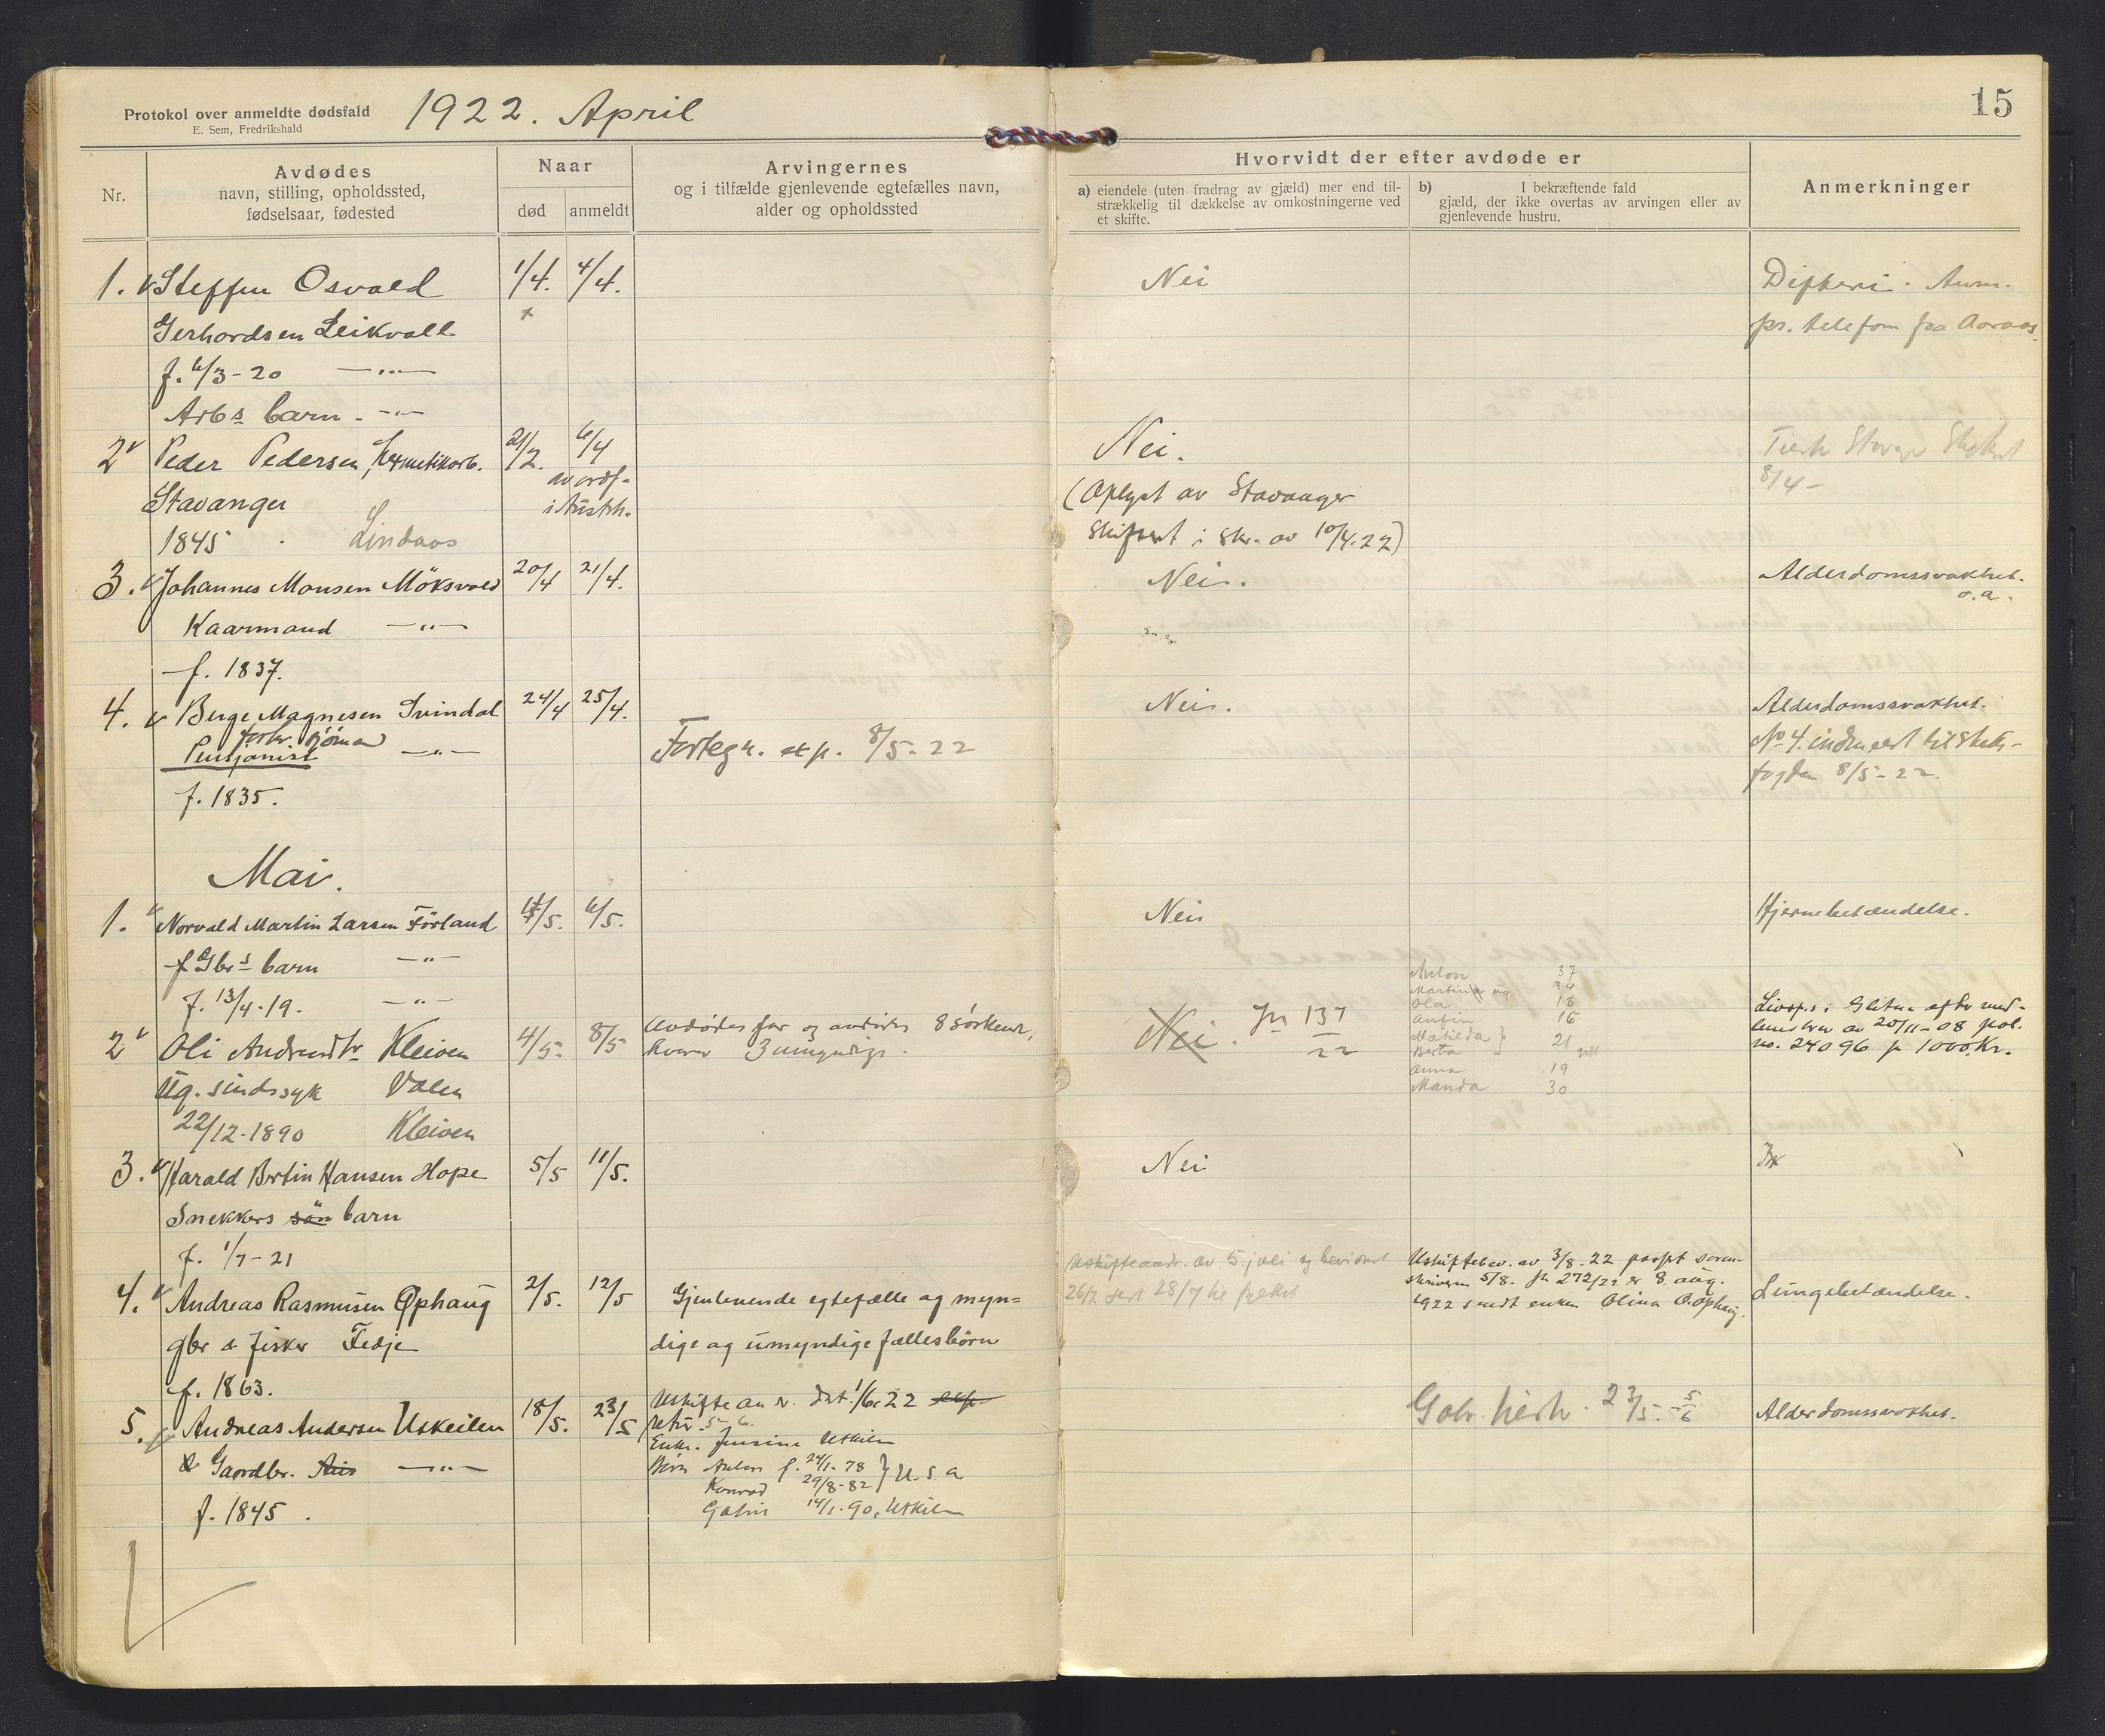 Protokol over anmeldte dødsfald
E. Sem, Fredrikshald
1922. April
15
Nr.
Avdødes
navn, stilling, opholdssted,
fødselsaar, fødested
Naar
død
anmeldt
Arvingernes
og i tilfælde gjenlevende egtefælles navn,
alder og opholdssted
Hvorvidt der efter avdøde er
a) eiendele (uten fradrag av gjæld) mer end til-
strækkelig til dækkelse av omkostningerne ved
et skifte.
b) I bekræftende fald
gjæld, der ikke overtas av arvingen eller av
gjenlevende hustru.
Anmerkninger
1. Steffen Osvald 1/4. 4/4. Nei Difteri. Anm.
Gerhardsen Leikvoll pr. telefon fra
f. 6/3-20 —"—
Arbs barn. -"-
2 Peder Pedersen, Hermetikarb. 21/2. 6/4 Nei.
Stavanger (Oplyst av Stavanger
1845 Lindaas Skifteret i skr. av 10/4.22)
8/4-
3. Johannes Monsen Möksvold 20/4 21/4. Nei. Alderdomssvakhet.
o.a.
Kaarmand —"—
f. 1837.
4. Berge Magnesen Svindal 24/4 25/4. Nei. Alderdomssvakhet.
forhv. sjømand
Pensjonist —"— Fortegn. exp. 8/5-22 No 4. til
f. 1835. 8/5-22.
Mai.
1. Norvald Martin Larsen Förland /5. 6/5. Nei Hjernebetændelse.
Gbrs barn —"—
f. 13/4-19. —"—
2 Oli Andreasdtr Kleiven 4/5- 8/5 Avdødes far og avdødes 8 søskende,
hvorav 3 umyndige.
Nei. Jn 137
22
Anton 37
Martin 34
Ola 18
Anfin 16
Matilda } 21
Berta
Anna 19
Manda 30
Livsp. i Glitne efter
av 20/11-08 pol.
no. 24096 p 1000 Kr.
Ug. sindssyk Valen
22/12-1890 Kleiven
3. Harald Bertin Hansen Hope 5/5 11/5. Nei
Snekkers sön barn
f. 1/7-21
4. Andreas Rasmusen Ophaug 2/5. 12/5 Gjenlevende egtefælle og myn=
gbr & fisker Fedje dige og umyndige fællesbörn
f. 1863.
av 5. juli og
26/7 28/7 til
Uskiftebev. av 3/8-22 soren-
skriveren 5/8. Jn 272/22 8 aug.
1922 sendt enken Olina O. Ophaug.
Lungebetændelse.
5. Andreas Andersen Uskeilen 18/5. 23/5 dat. 1/6.22
retur. 5-6.
Enke. Jensine Utkilen
Gaardbr. —"— Börn Anders f. 24/1-78 } U.S.A
Konrad 29/8-82
f. 1845. 14/1.90, Utkilen
23/5. 5/6
Alderdomssvakhet.